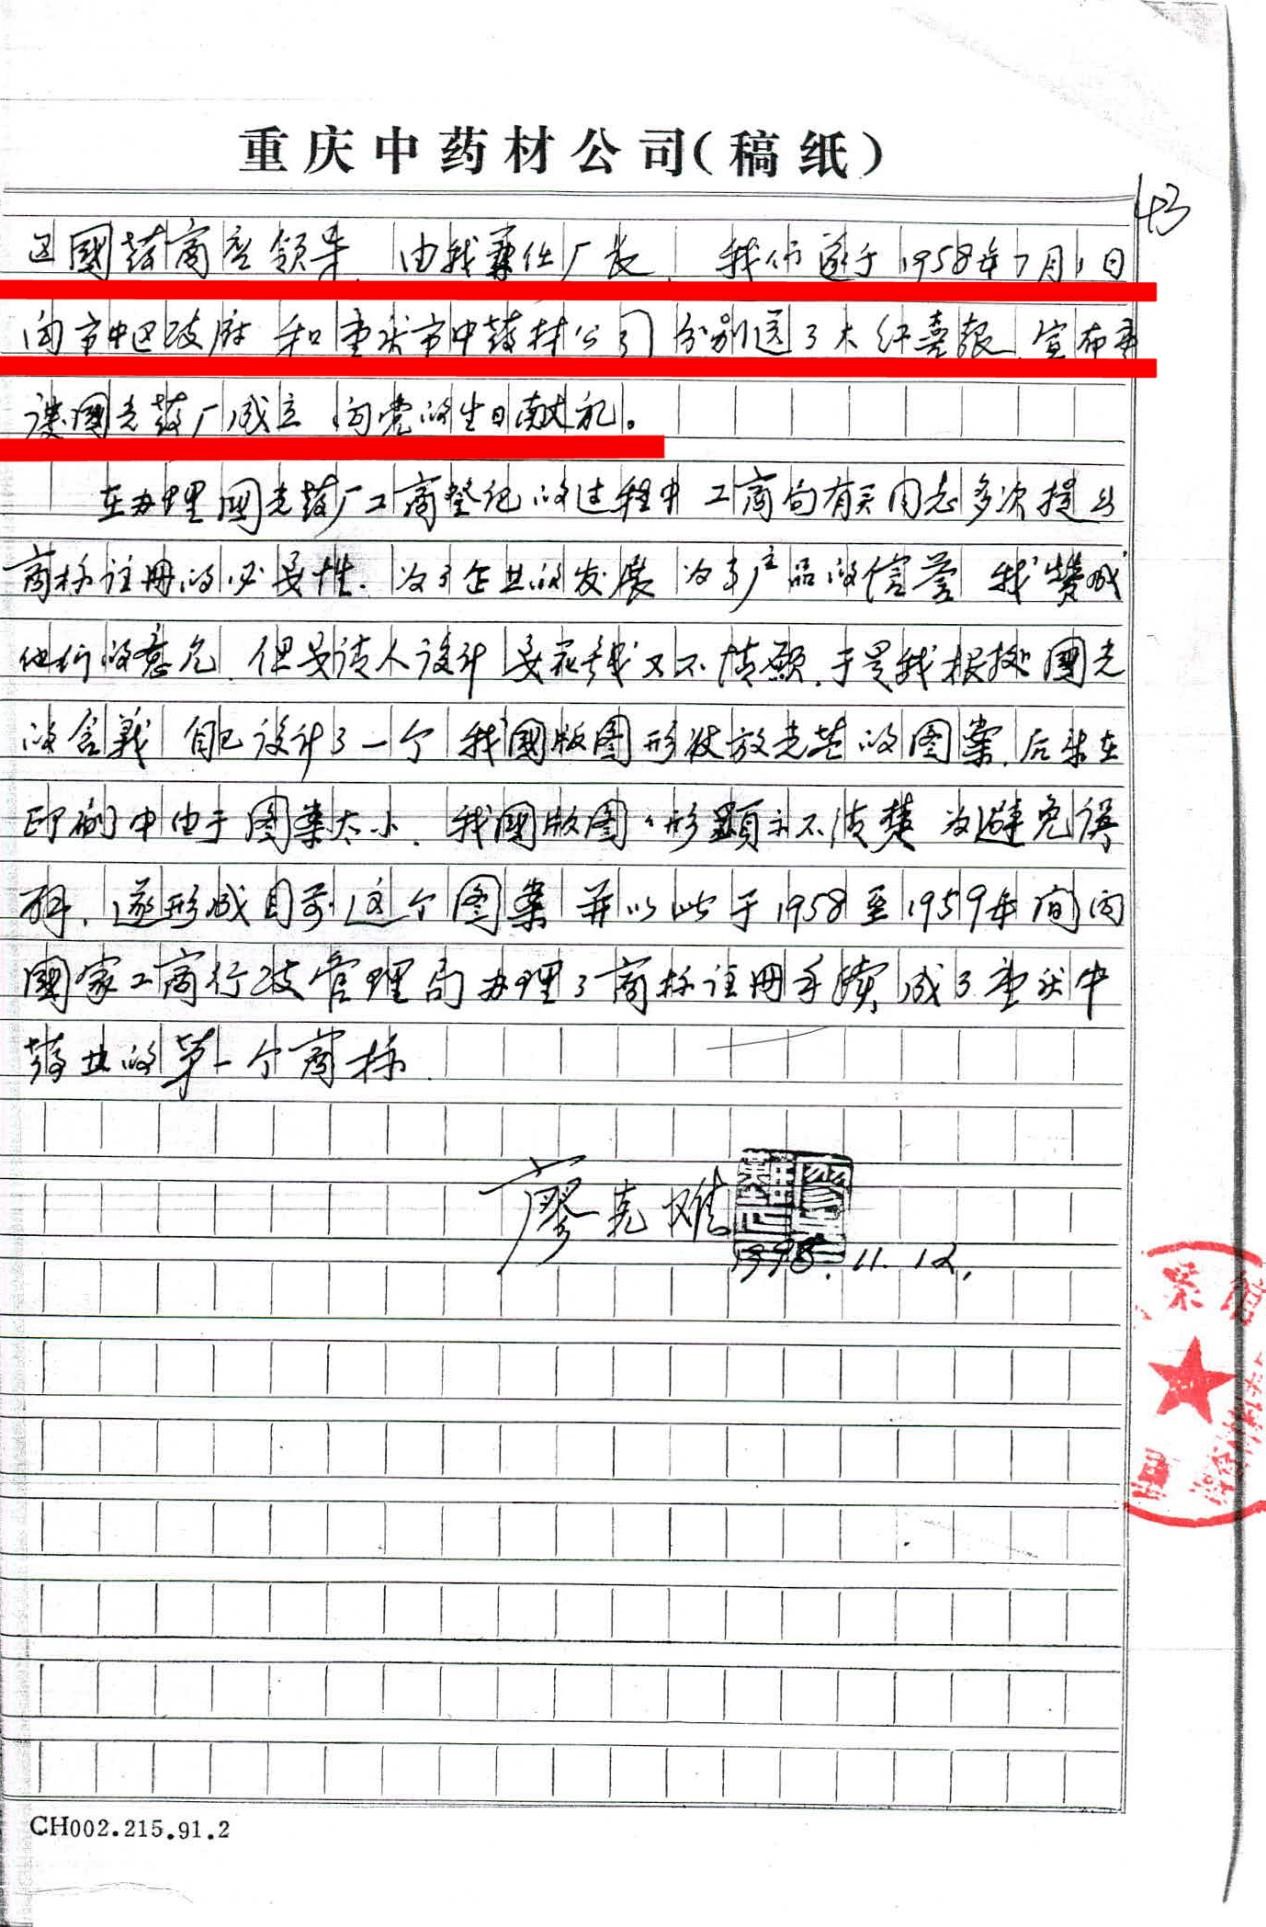 重庆中药材公司(稿纸)
43
区國药商店领导,由我兼任厂长,我们遂于1958年7月1日
向市中区政府和重庆市中药材公司分别送了大红喜报,宣布重
庆國光药厂成立,向党的生日献礼。
在办理國光药厂工商登记的过程中,工商局有关同志多次提出
商标注册的必要性,为了企业的发展,为了产品的信誉,我赞成
他们的意见,但要请人设计要花钱我又不情愿,于是我根据國光
的含義,自己设计了一个我國版图形状放光芒的图案,后来在
印刷中由于图案太小,我國版图图形顯示不清楚,为避免误
解,遂形成目前这个图案,并以此于1958至1959年间向
國家工商行政管理局办理了商标注册手续,成了重庆中
药业的第一个商标.
廖克难
1998.11.12.
CH002.215.91.2